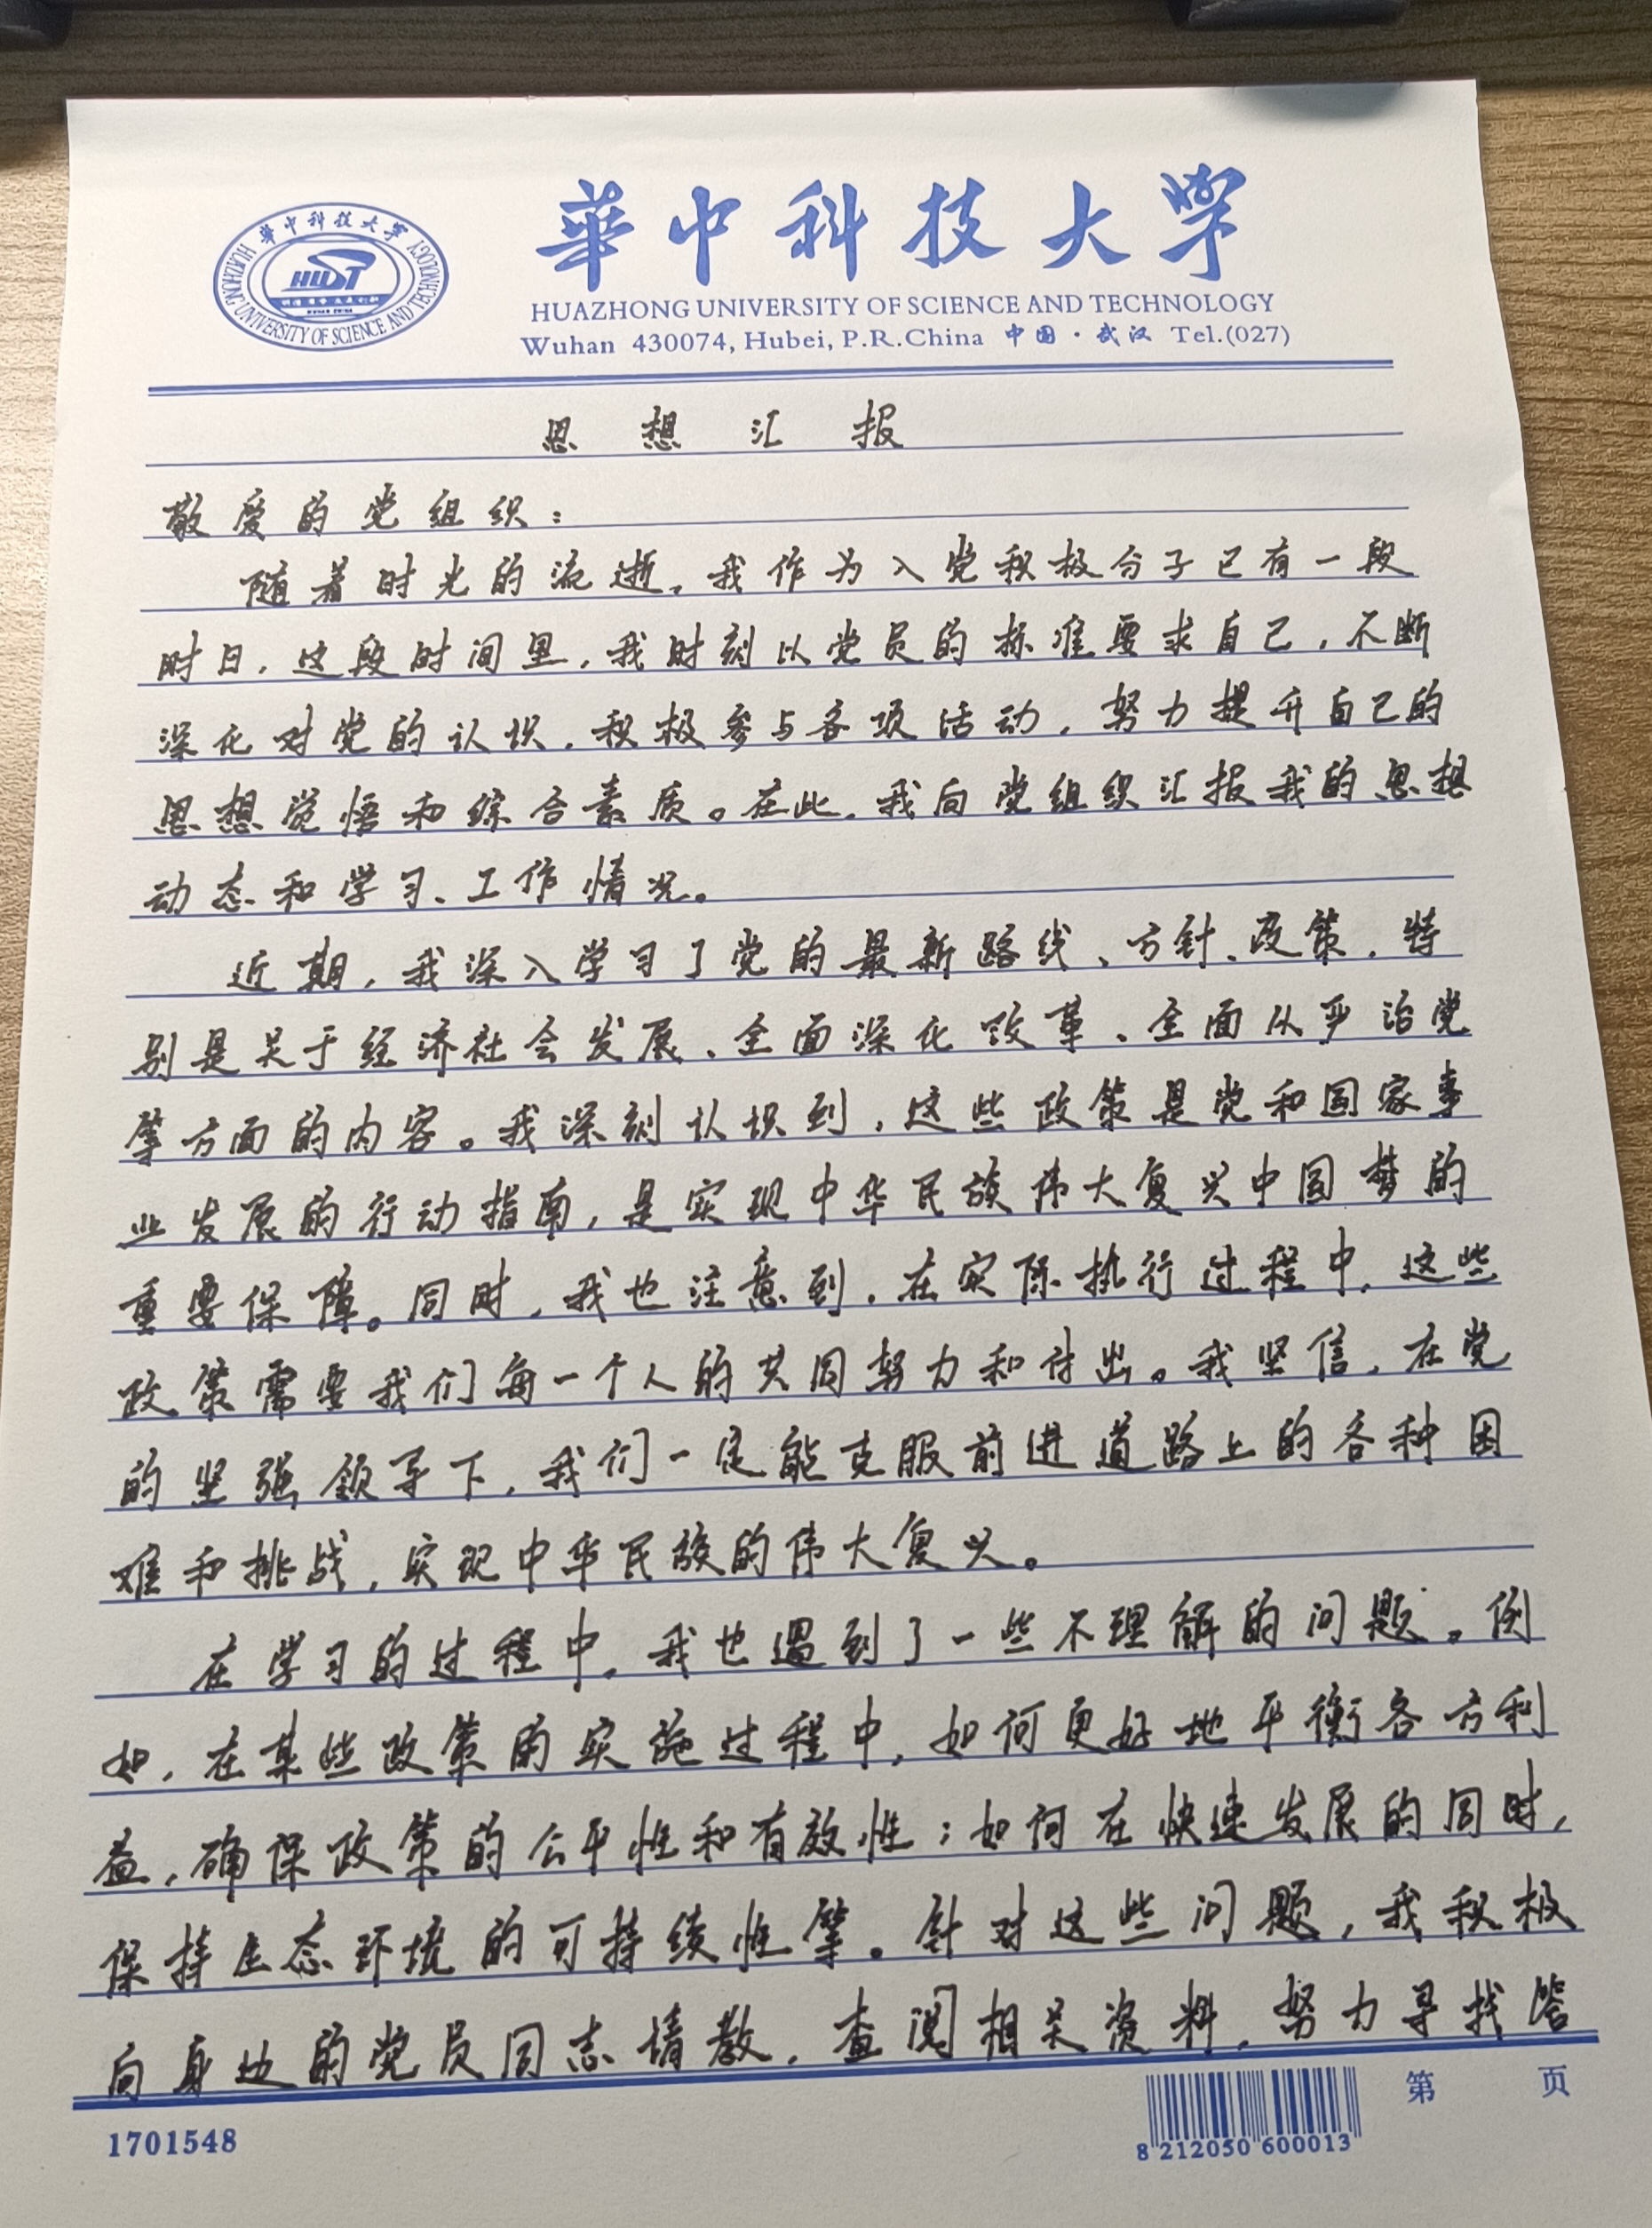 華中科技大学
華中科技大学
HUAZHONG UNIVERSITY OF SCIENCE AND TECHNOLOGY
HUST
HUAZHONG UNIVERSITY OF SCIENCE AND TECHNOLOGY
Wuhan 430074, Hubei, P.R.China 中国·武汉 Tel.(027)
思想汇报
敬爱的党组织：
随着时光的流逝，我作为入党积极分子已有一段
时日，这段时间里，我时刻以党员的标准要求自己，不断
深化对党的认识，积极参与各项活动，努力提升自己的
思想觉悟和综合素质。在此，我向党组织汇报我的思想
动态和学习、工作情况。
近期，我深入学习了党的最新路线、方针、政策，特
别是关于经济社会发展、全面深化改革、全面从严治党
等方面的内容。我深刻认识到，这些政策是党和国家事
业发展的行动指南，是实现中华民族伟大复兴中国梦的
重要保障。同时，我也注意到，在实际执行过程中，这些
政策需要我们每一个人的共同努力和付出。我坚信，在党
的坚强领导下，我们一定能克服前进道路上的各种困
难和挑战，实现中华民族的伟大复兴。
在学习的过程中，我也遇到了一些不理解的问题。例
如，在某些政策的实施过程中，如何更好地平衡各方利
益，确保政策的公平性和有效性；如何在快速发展的同时，
保持生态环境的可持续性等。针对这些问题，我积极
向身边的党员同志请教，查阅相关资料，努力寻找答
1701548
8 212050 600013
第 页